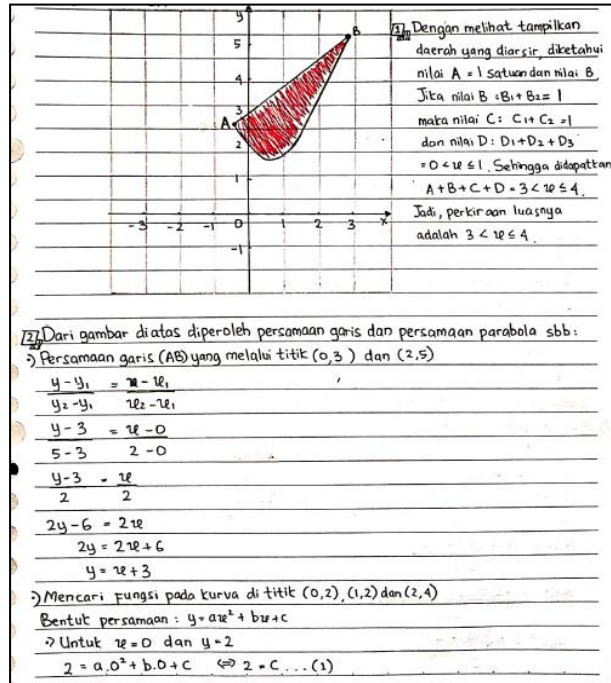 y
5
4
3
2
1
-1
A
B
-3 -2 -1 0 1 2 3 x
[1] Dengan melihat tampilkan
daerah yang diarsir, diketahui
nilai A = 1 satuan dan nilai B
Jika nilai B : B₁ + B₂ = 1
maka nilai C : C₁ + C₂ = 1
dan nilai D : D₁ + D₂ + D₃
= 0 < x ≤ 1. Sehingga didapattan
A + B + C + D = 3 < x ≤ 4.
Jadi, perkiraan luasnya
adalah 3 < x ≤ 4.
[2] Dari gambar diatas diperoleh persamaan garis dan persamaan parabola sbb :
•) Persamaan garis (AB) yang melalui titik (0,3) dan (2,5)
(y - y₁)/(y₂ - y₁) = (x - x₁)/(x₂ - x₁)
(y - 3)/(5 - 3) = (x - 0)/(2 - 0)
(y - 3)/2 = x/2
2y - 6 = 2x
2y = 2x + 6
y = x + 3
•) Mencari fungsi pada kurva di titik (0,2), (1,2) dan (2,4)
Bentuk persamaan : y = ax² + bx + c
•) Untuk x = 0 dan y = 2
2 = a.0² + b.0 + c ⇔ 2 = c ... (1)